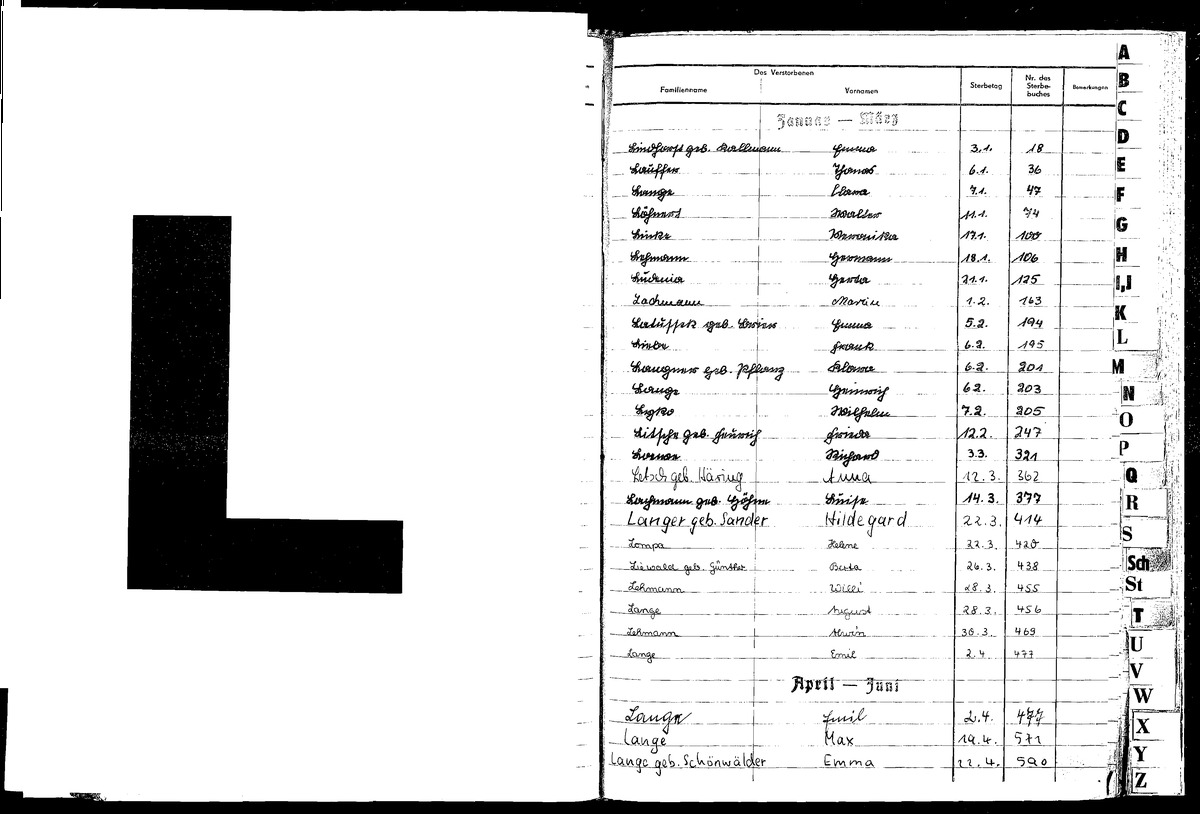 L
Des Verstorbenen
Familienname Vornamen Sterbetag Nr. des Sterbe-buches Bemerkungen
Januar — März
Lindhorst geb. Kallmann Emma 3.1. 18
Lauffer Thomas 6.1. 36
Lange Clara 7.1. 47
Löhnert Walter 11.1. 74
Linke Weronika 17.1. 100
Lehmann Hermann 18.1. 106
Ludenia Gerda 21.1. 125
Lachmann Martin 1.2. 163
Latussek geb. Emma 5.2. 194
Liebe Frank 6.2. 195
Langner geb. Pflanz Klara 6.2. 201
Lange Heinrich 6.2. 203
Wilhelm 7.2. 205
Litsche geb. Feurich Frieda 12.2. 247
Loewe Richard 3.3. 321
Letsch geb. Häring Anna 12.3. 362
Lachmann geb. Höhne Luise 14.3. 377
Langer geb. Sander Hildegard 22.3. 414
Lompa Helene 22.3. 420
Liewald geb. Günther Berta 26.3. 438
Lehmann Willi 28.3. 455
Lange August 28.3. 456
Lehmann Alwin 30.3. 469
Lange Emil 2.4. 477
April — Juni
Lange Emil 2.4. 477
Lange Max 19.4. 571
Lange geb. Schönwälder Emma 22.4. 590
A
B
C
D
E
F
G
H
I,J
K
L
M
N
O
P
Q
R
S
Sch
St
T
U
V
W
X
Y
Z